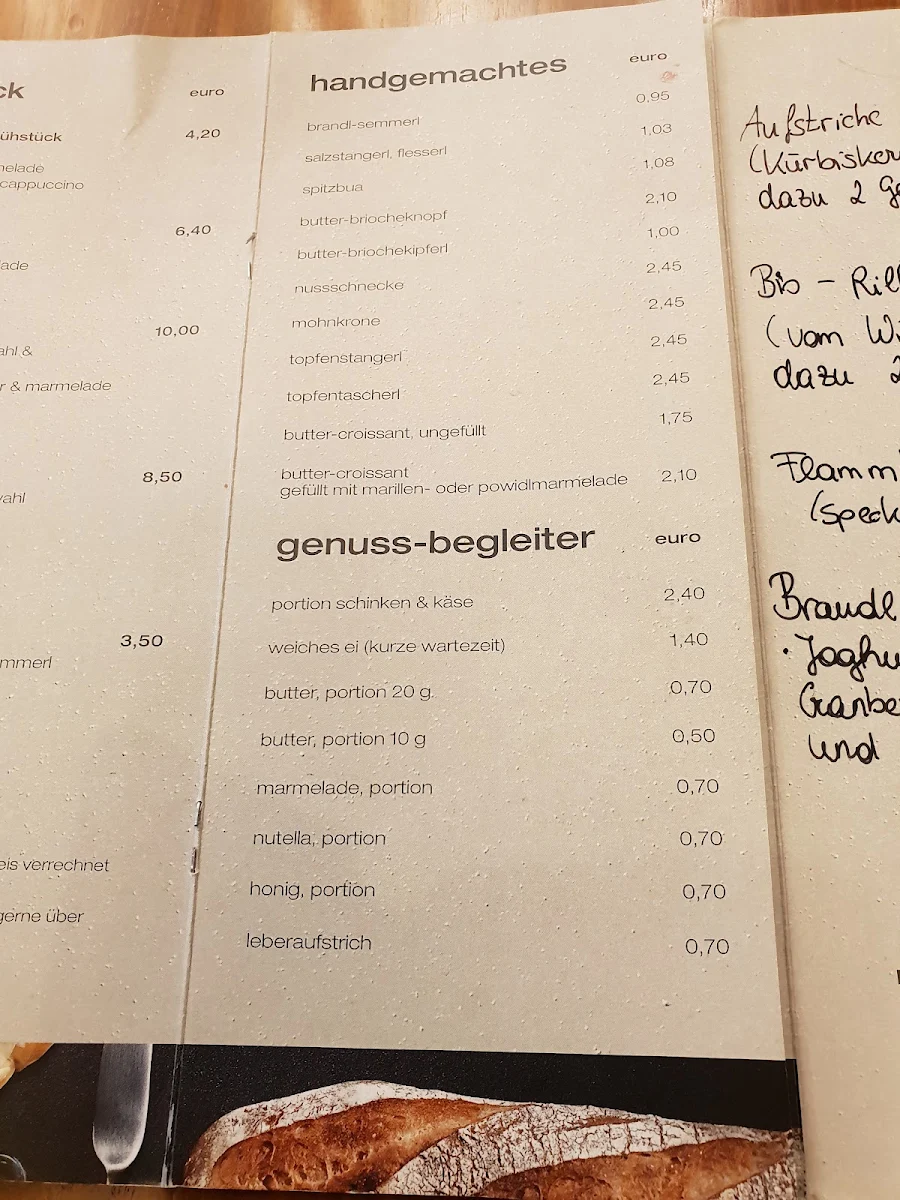 ck euro
ühstück 4,20
melade
cappuccino
6,40
lade
10,00
ahl &
r & marmelade
8,50
vahl
3,50
mmerl
eis verrechnet
gerne über
handgemachtes euro
brandl-semmerl 0,95
salzstangerl, flesserl 1,03
spitzbua 1,08
butter-briocheknopf 2,10
butter-briochekipferl 1,00
nussschnecke 2,45
mohnkrone 2,45
topfenstangerl 2,45
topfentascherl 2,45
butter-croissant, ungefüllt 1,75
butter-croissant
gefüllt mit marillen- oder powidlmarmelade 2,10
genuss-begleiter euro
portion schinken & käse 2,40
weiches ei (kurze wartezeit) 1,40
butter, portion 20 g 0,70
butter, portion 10 g 0,50
marmelade, portion 0,70
nutella, portion 0,70
honig, portion 0,70
leberaufstrich 0,70
Aufstriche
(Kürbisker
dazu 2 Ge
Bio - Rill
(vom Wi
dazu 2
Flamm
(Speck
Brandl
· Joghu
Cranbe
und